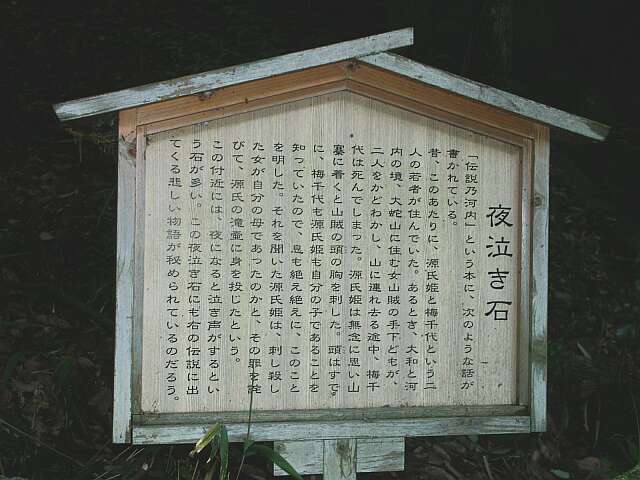 夜泣き石
「伝説乃河内」という本に、次のような話が
書かれている。
昔、このあたりに、源氏姫と梅千代という二
人の若者が住んでいた。あるとき、大和と河
内の境、大蛇山に住む女山賊の手下どもが、
二人をかどわかし、山に連れ去る途中、梅千
代は死んでしまった。源氏姫は無念に思い山
塞に着くと山賊の頭の胸を刺した。頭はすで
に、梅千代も源氏姫も自分の子であることを
知っていたので、息も絶え絶えに、このこと
を明した。それを聞いた源氏姫は、刺し殺し
た女が自分の母であったのかと、その罪を詫
びて、源氏の滝壷に身を投じたという。
この付近には、夜になると泣き声がするとい
う石が多い。この夜泣き石にも右の伝説に出
てくる悲しい物語が秘められているのだろう。